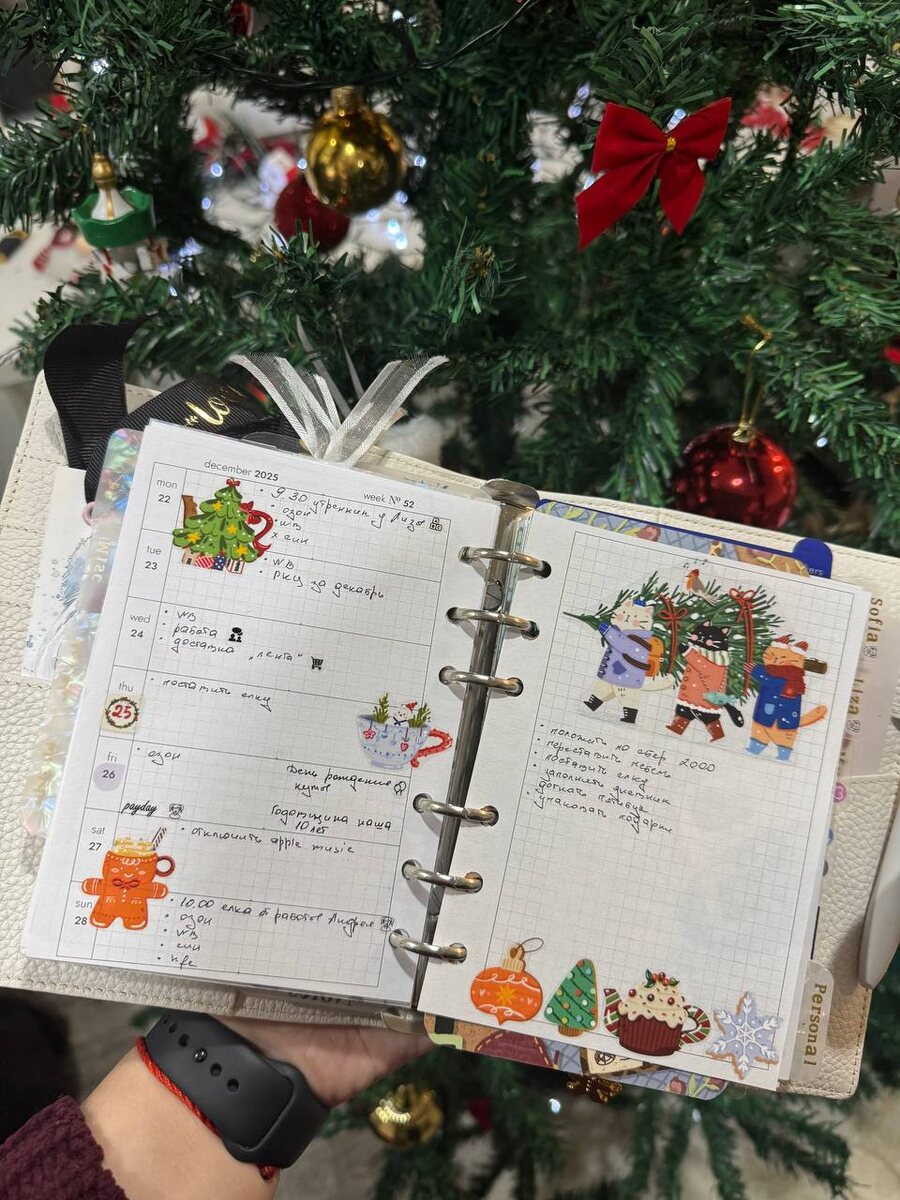 love
december 2025
week № 52
mon
22
• 9.30 утренник у Лизы
• озон
• WB
tue
23
• WB
• РКЦ за декабрь
wed
24
• WB
• работа
• доставка "Лента"
thu
25
• поставить елку
fri
26
• озон
День рождения
payday
Годовщина наша
10 лет
sat
27
• отключить apple music
sun
28
• 10.00 елка от работы Андрея
• озон
• WB
• положить на стер 2000
• переставить мебель
• поставить елку
• заполнить дневник
• упаковать подарки
Sofia
Liza
Personal